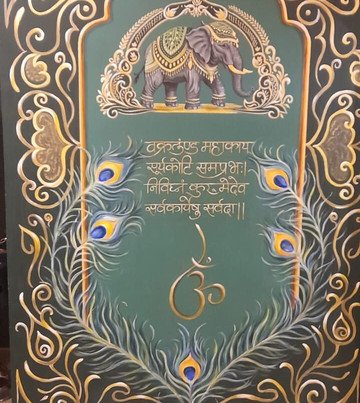 वक्रतुण्ड महाकाय
सूर्यकोटि समप्रभः।
निर्विघ्नं कुरु मे देव
सर्वकार्येषु सर्वदा।।
ॐ